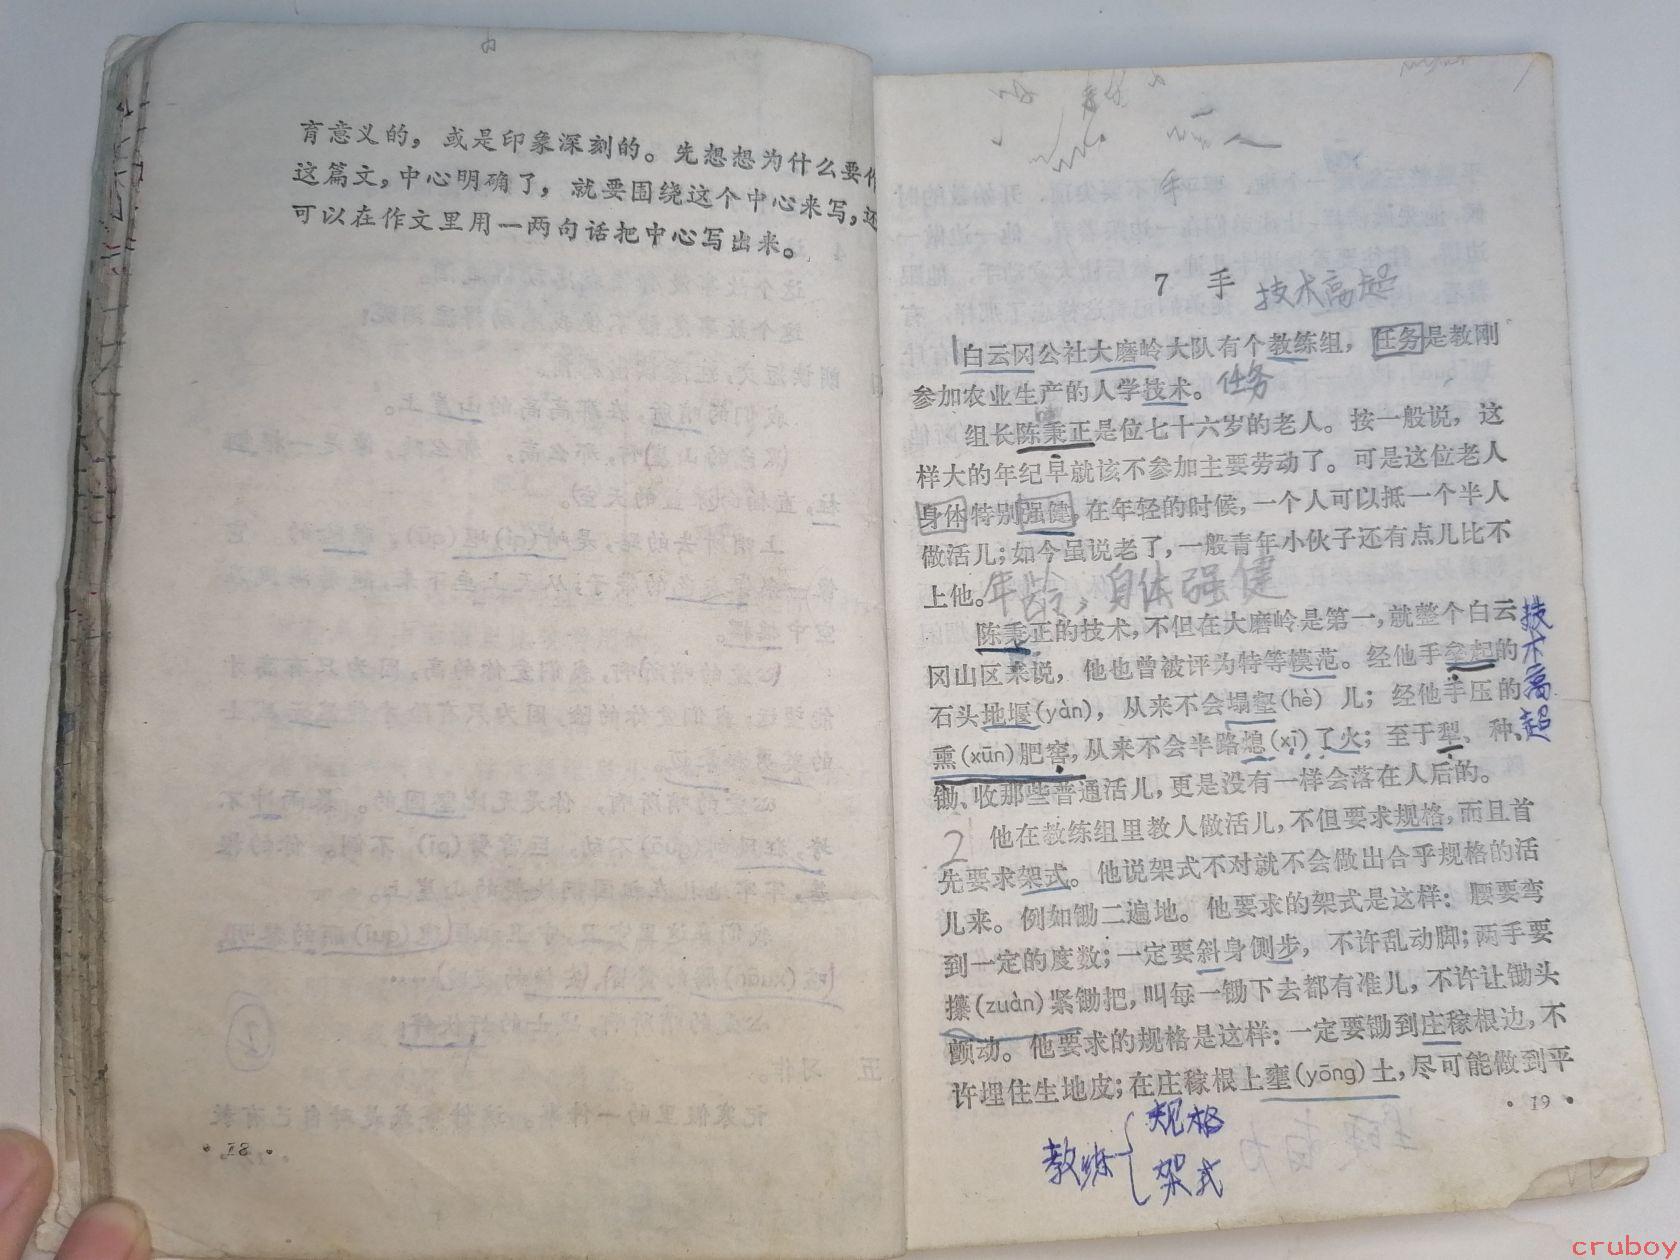 育意义的，或是印象深刻的。先想想为什么要作
这篇文，中心明确了，就要围绕这个中心来写，还
可以在作文里用一两句话把中心写出来。
• 18 •
手
7 手 技术高超
白云冈公社大磨岭大队有个教练组，任务是教刚
参加农业生产的人学技术。任务
组长陈秉正是位七十六岁的老人。按一般说，这
样大的年纪早就该不参加主要劳动了。可是这位老人
身体特别强健，在年轻的时候，一个人可以抵一个半人
做活儿；如今虽说老了，一般青年小伙子还有点儿比不
上他。年龄，身体强健
陈秉正的技术，不但在大磨岭是第一，就整个白云
冈山区来说，他也曾被评为特等模范。经他手垒起的
石头地堰(yàn)，从来不会塌壑(hè)儿；经他手压的
熏(xūn)肥窖，从来不会半路熄(xī)了火；至于犁、种、
锄、收那些普通活儿，更是没有一样会落在人后的。
技术高超
2
他在教练组里教人做活儿，不但要求规格，而且首
先要求架式。他说架式不对就不会做出合乎规格的活
儿来。例如锄二遍地。他要求的架式是这样：腰要弯
到一定的度数；一定要斜身侧步，不许乱动脚；两手要
攥(zuàn)紧锄把，叫每一锄下去都有准儿，不许让锄头
颤动。他要求的规格是这样：一定要锄到庄稼根边，不
许埋住生地皮；在庄稼根上壅(yōng)土，尽可能做到平
• 19 •
教练
规格
架式
cruboy